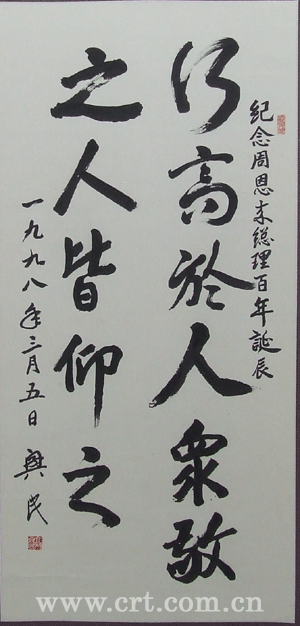 紀念周恩来總理百年誕辰
行高於人衆敬
之人皆仰之
一九九八年三月五日 興民
www.crt.com.cn